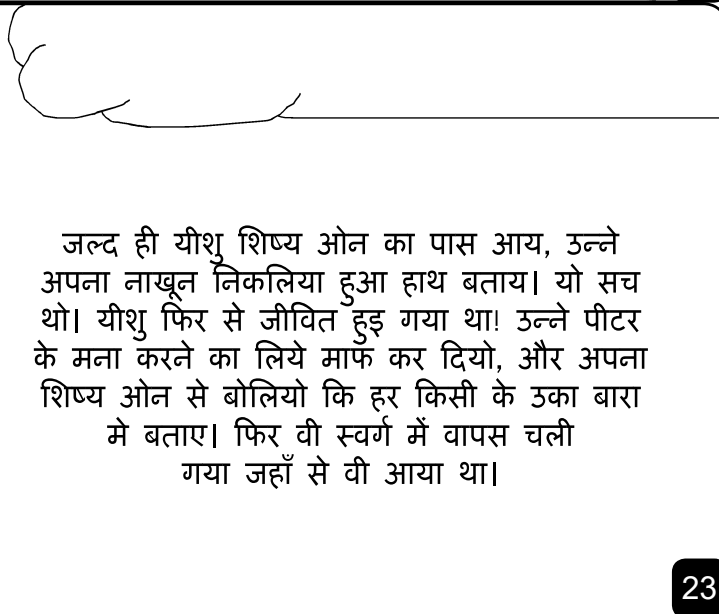 जल्द ही यीशु शिष्य ओन का पास आय, उन्ने
अपना नाखून निकलिया हुआ हाथ बताय। यो सच
थो। यीशु फिर से जीवित हुइ गया था! उन्ने पीटर
के मना करने का लिये माफ कर दियो, और अपना
शिष्य ओन से बोलियो कि हर किसी के उका बारा
मे बताए। फिर वी स्वर्ग में वापस चली
गया जहाँ से वी आया था।
23